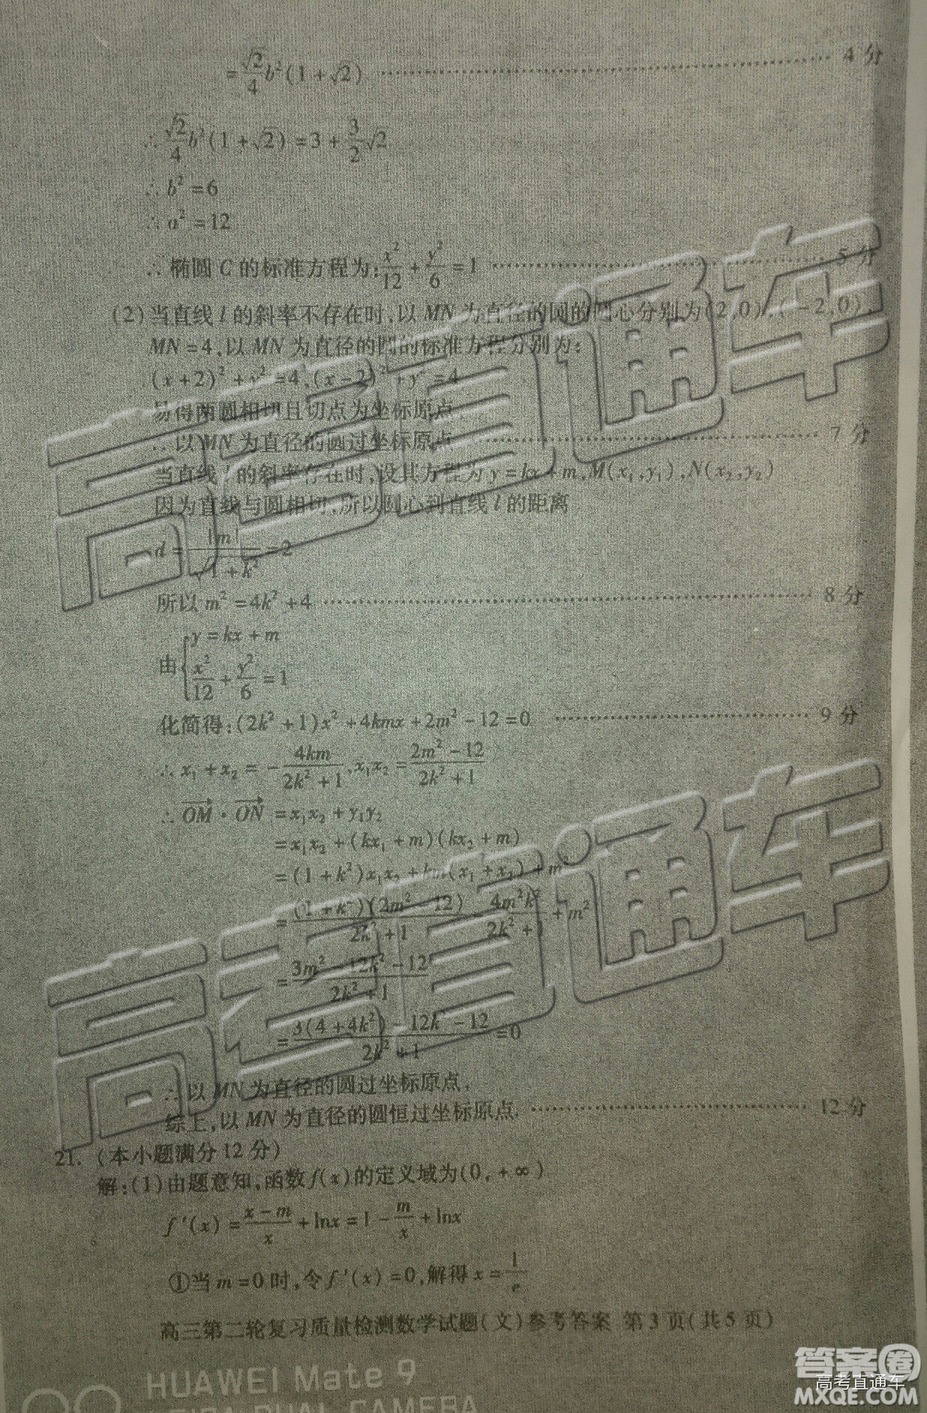 =√2/4 b²(1+√2) ………………………… 4分
∴ √2/4 b²(1+√2)=3+3/2√2
∴ b²=6
∴ a²=12
∴ 椭圆C的标准方程为:x²/12+y²/6=1 ………………………… 5分
(2)当直线l的斜率不存在时,以MN为直径的圆的圆心分别为(2,0),(-2,0)
MN=4,以MN为直径的圆的标准方程分别为:
(x+2)²+y²=4,(x-2)²+y²=4
易得两圆相切且切点为坐标原点
∴以MN为直径的圆过坐标原点 ………………………… 7分
当直线l的斜率存在时,设其方程为y=kx+m,M(x₁,y₁),N(x₂,y₂)
因为直线与圆相切,所以圆心到直线l的距离
d=|m|/√(1+k²)=2
所以m²=4k²+4 ………………………… 8分
由{y=kx+m
x²/12+y²/6=1
化简得:(2k²+1)x²+4kmx+2m²-12=0 ………………………… 9分
∴x₁+x₂=-4km/(2k²+1),x₁x₂=(2m²-12)/(2k²+1)
∴OM·ON=x₁x₂+y₁y₂
=x₁x₂+(kx₁+m)(kx₂+m)
=(1+k²)x₁x₂+km(x₁+x₂)+m²
=(1+k²)(2m²-12)/(2k²+1)-4m²k²/(2k²+1)+m²
=(3m²-12k²-12)/(2k²+1)
=(3(4+4k²)-12k²-12)/(2k²+1)=0
∴以MN为直径的圆过坐标原点.
综上,以MN为直径的圆恒过坐标原点. ………………………… 12分
21.(本小题满分12分)
解:(1)由题意知,函数f(x)的定义域为(0,+∞)
f′(x)=(x-m)/x+lnx=1-m/x+lnx
①当m=0时,令f′(x)=0,解得x=1/e
高三第二轮复习质量检测数学试题(文)参考答案 第3页(共5页)
高考直通车
高考直通车
HUAWEI Mate 9
DUAL CAMERA
答案圈
高考直通车
MXQE.COM